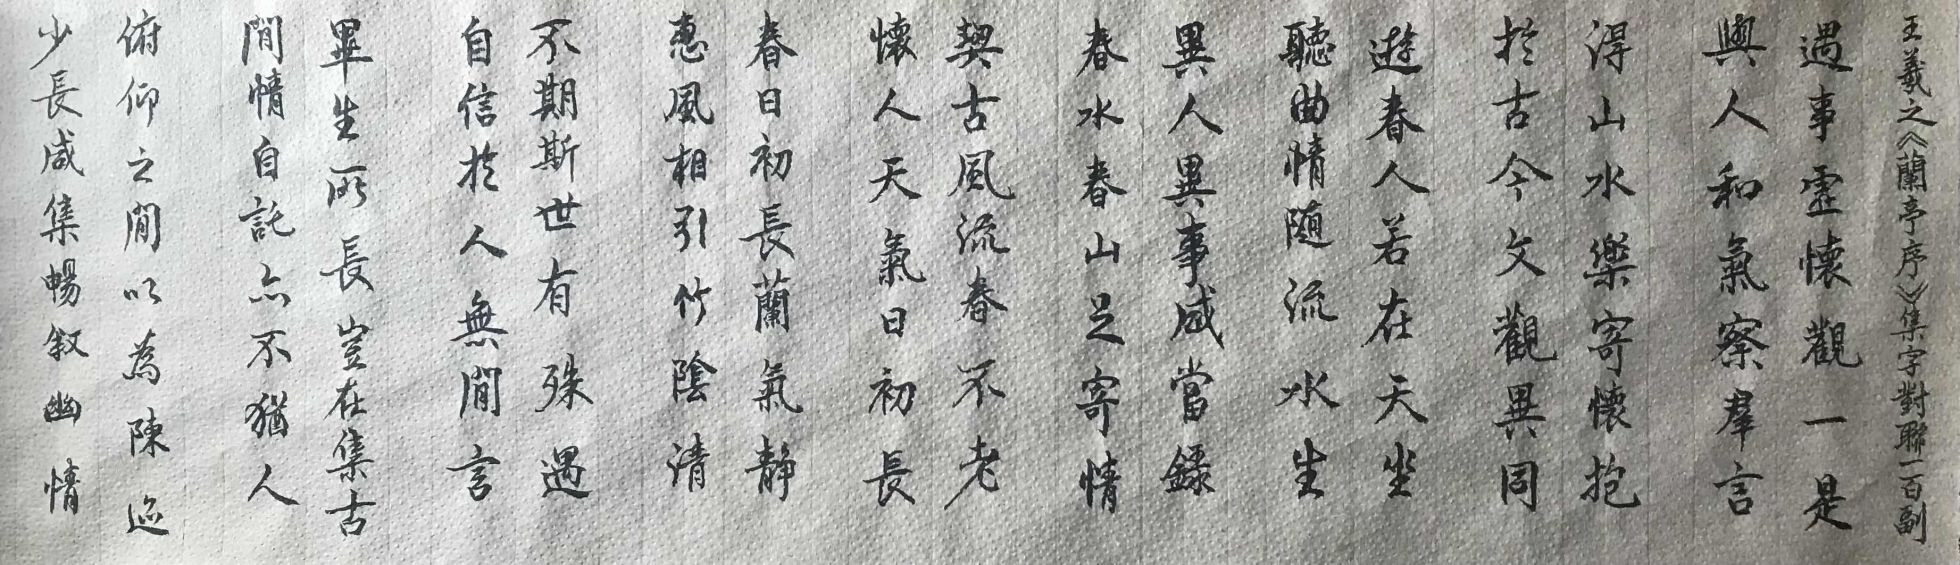 王羲之《蘭亭序》集字對聯一百副
遇事靈懷觀一是
與人和氣察羣言
得山水樂寄懷抱
於古今文觀異同
遊春人若在天坐
聽曲情随流水生
異人異事感當錄
春水春山足寄情
契古風流春不老
懷人天氣日初長
春日初長蘭氣静
惠風相引竹陰清
不期斯世有殊遇
自信於人無間言
畢生所長豈在集古
閒情自託亦不猶人
俯仰之間以為陳迹
少長咸集暢叙幽情